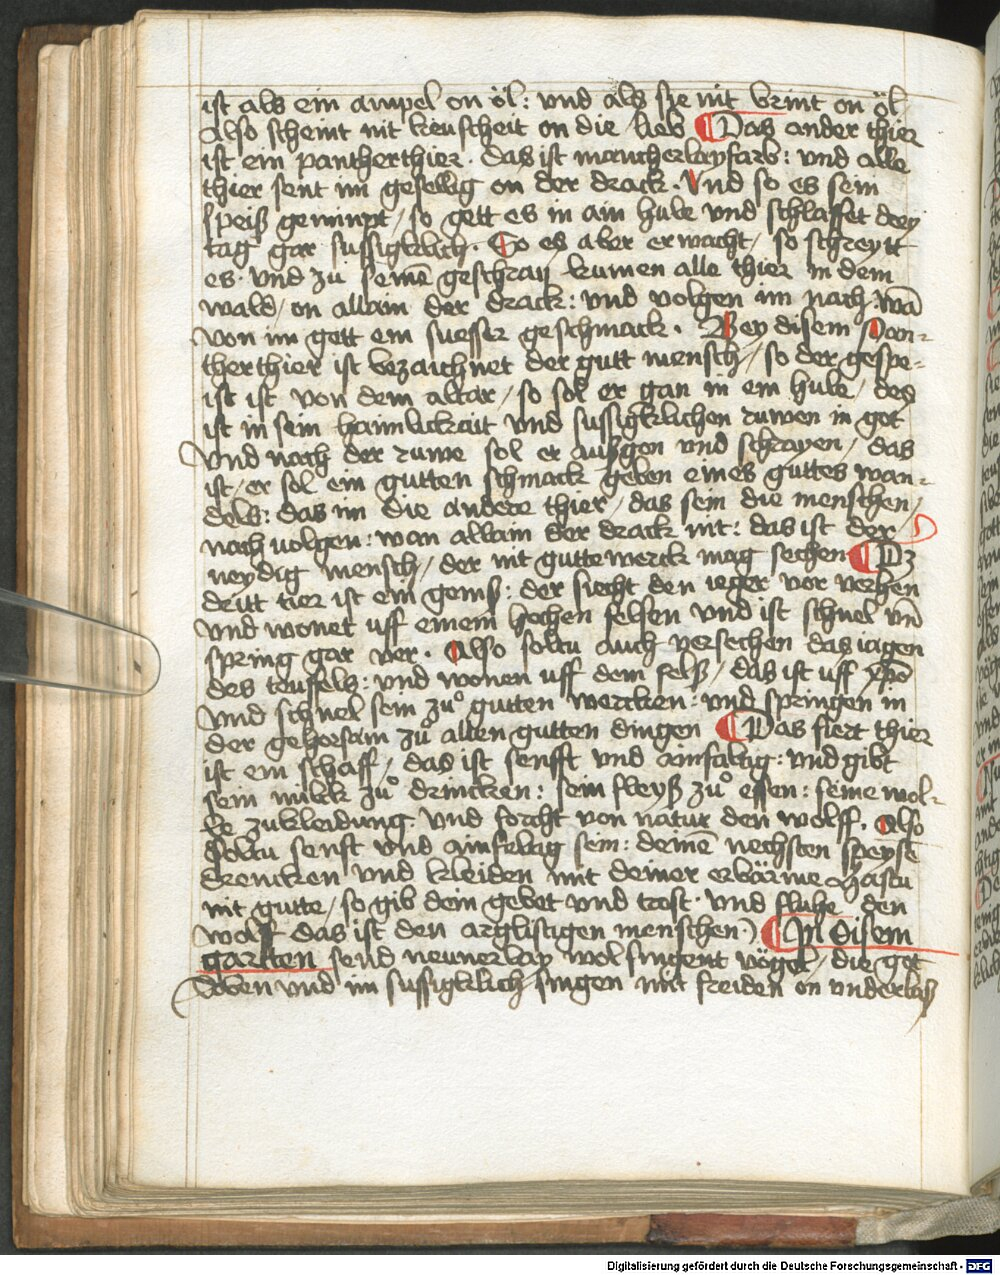 ist als ein ampel on öl: und als sye nit brint on öl
Also scheint nit keuscheit on die lieb ¶ Das ander thier
ist ein pantherthier. das ist mancherlayfarb: und alle
thier sent im gesellig on der drack. Und so es sein
speiß genimpt / so gett es in ain hule und schlaffet drey
tag gar sussigklich. So es aber erwacht / so schreytt
es. und zu seinē geschray kumen alle thier in dem
wald / on allain der drack: und volgen im nach: wā
von im gett ein suesser geschmack. Bey disem pan-
therthier ist bezaichnet der gutt mensch / so der gespe-
ist ist von dem altar / so sol er gan in ein hule / des
ist in sein haimlickait und sussigklichen ruwen in got
Und nach der ruwe sol er außgon und schrayen / das
ist / er sol ein gutten schmack geben eines guttes wan-
dels: das im die andere thier / das sein die menschen /
nach volgen: wan allain der drack nit: das ist der
neydig mensch / der nit guttewerck mag sechen ¶ Dz
dritt tier ist ein gemß: der siecht den ieger vor verhen
und wonet uff einem hochen felsen und ist schnel uñ
spring gar ver. Also soltu auch versechen das iagen
des teuffels: und wonen uff dem felß / das ist uff xp̄o
und schnel sein zů gutten wercken: und springen in
der gehorsam zů allen gutten dingen ¶ Das fiert thier
ist ein schaff / das ist senfft und ainfaltig: und gibt
sein milck zů drincken: sein fleyß zů essen: seine wol-
le zukleidung: und forcht von natur den wolff. Also
soltu senft und ainfeltag sein: deinē nechsten speyse
drencken und kleiden mit deiner erbärme Hastu
nit gutte / so gib dein gebet und trost. und fluhe den
wolf das ist den arglistigen menschen) ¶ In disem
gartten send neunerlay wol singent vögel / die get
loben und im sussigklich singen mit freiden on underlaß
Digitalisierung gefördert durch die Deutsche Forschungsgemeinschaft - DFG